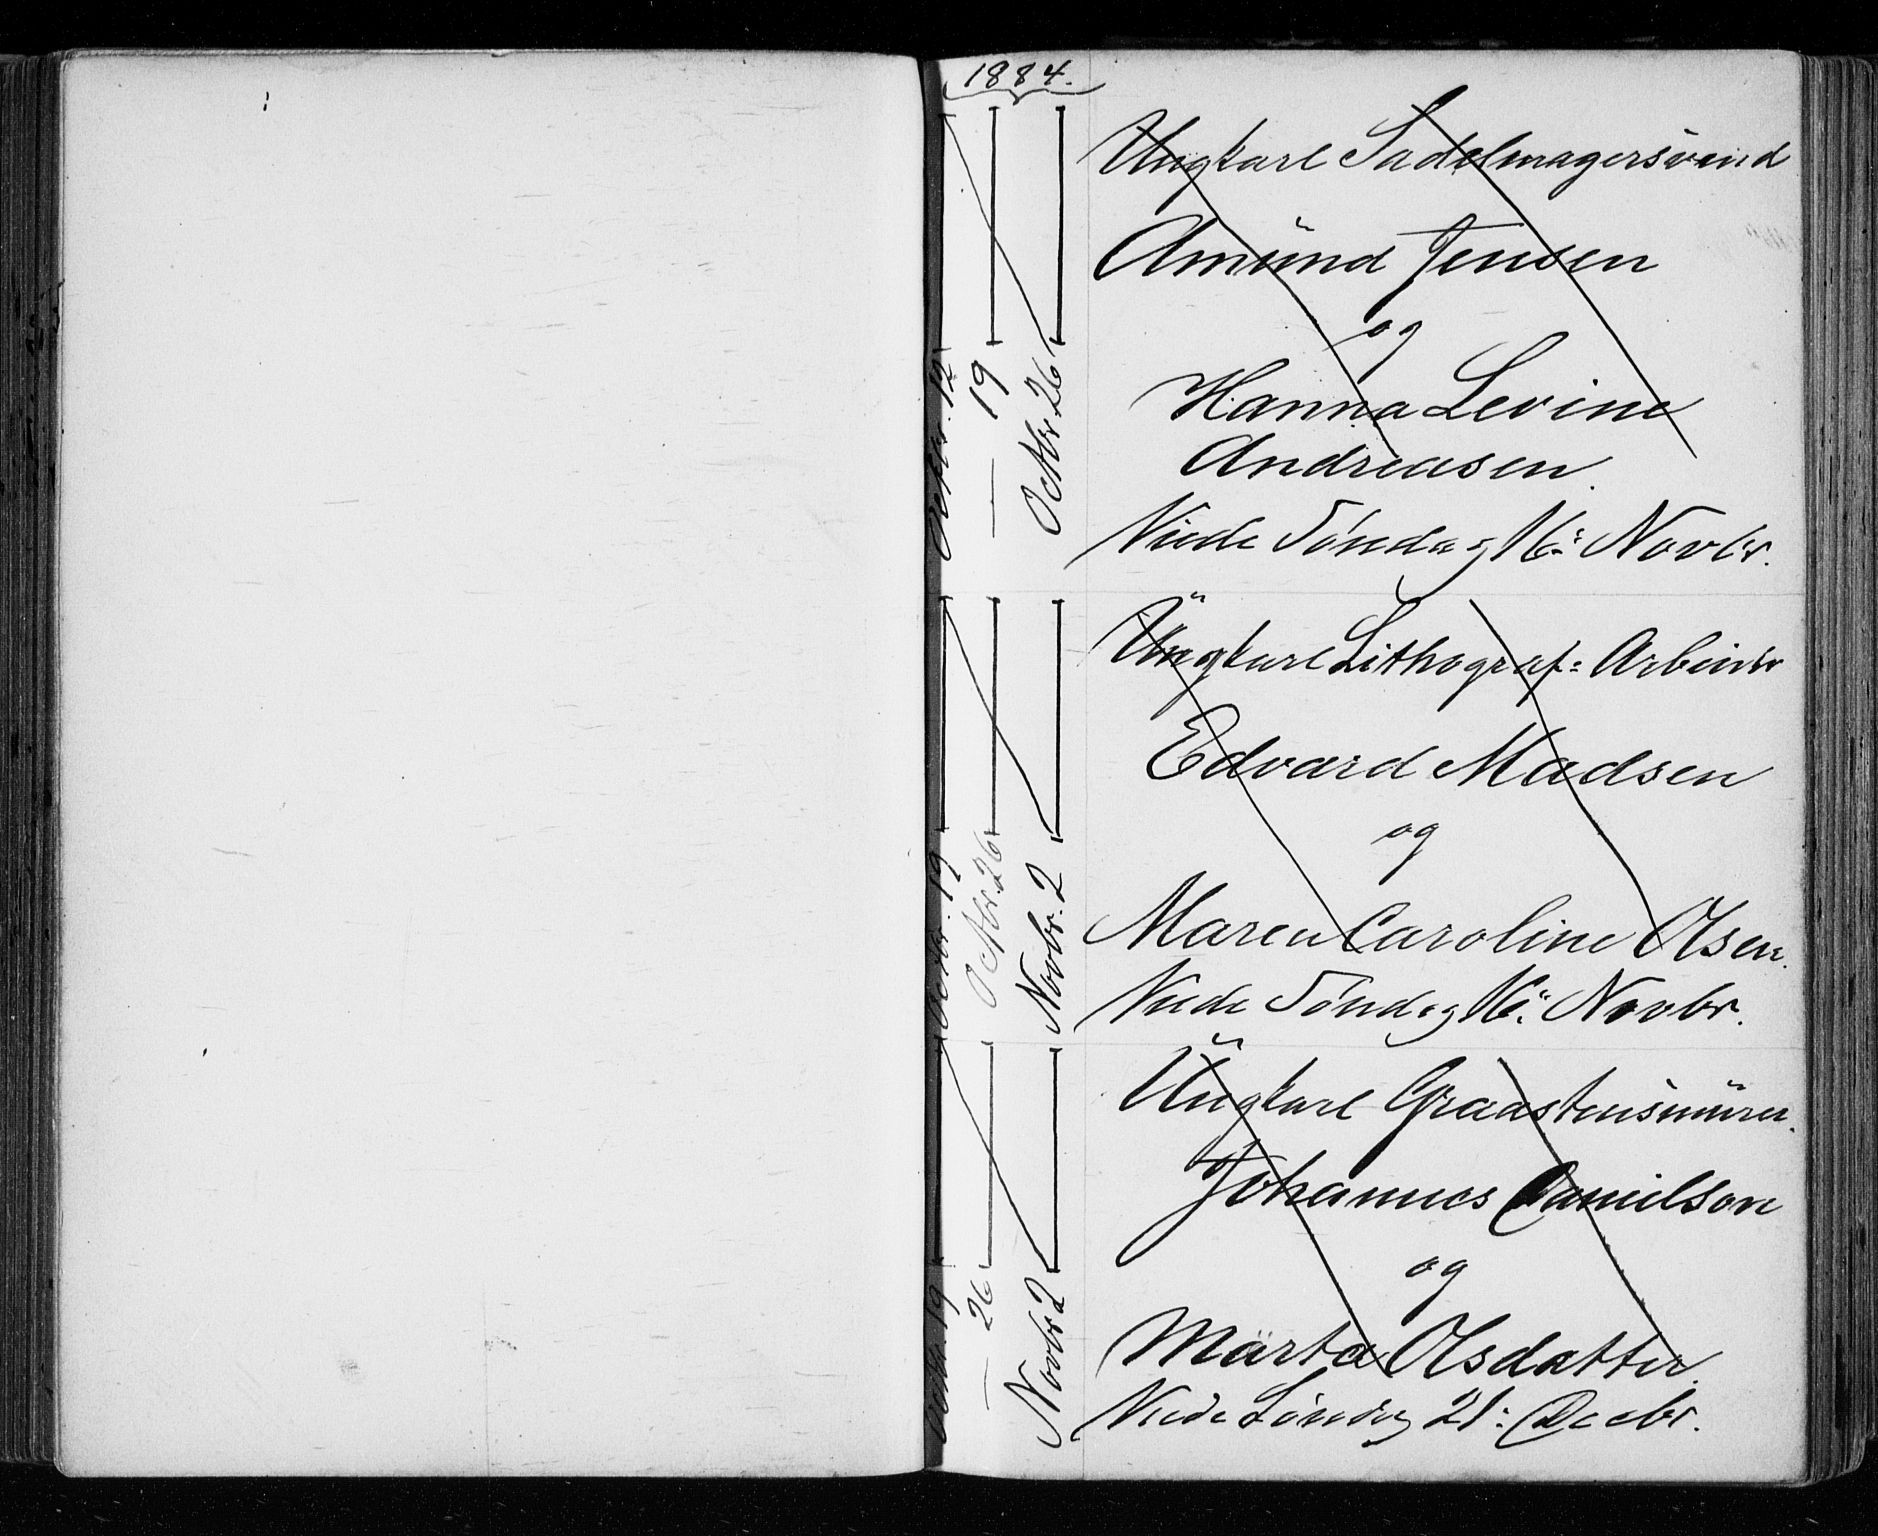 1884.
Octbr. 12
— 19
Octbr. 26
Ungkarl Sadelmagersvend
Amund Jensen
og
Hanna Levine
Andreasen.
Viede Søndag 16: Novbr.
Octbr. 19
Octbr. 26
Novbr. 2
Ungkarl Lithograf= Arbeider
Edvard Madsen
og
Maren Caroline Olsen.
Viede Søndag 16: Novbr.
Octbr. 19
— 26
Novbr 2
Ungkarl Graastensmurer.
Johannes Danielson
og
Märta Olsdatter.
Viede Søndag 21: Decbr.